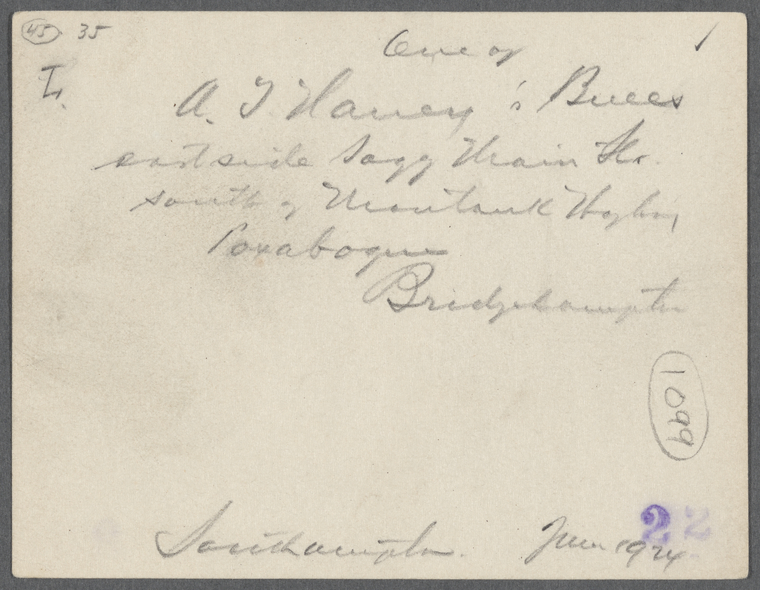 45 35
One of
L.
A. T. Haney's
east side Sagg Main Str.
south of Montauk Hghy
Poxabogue
Bridgehampton
1099
22
Southampton. June 1924